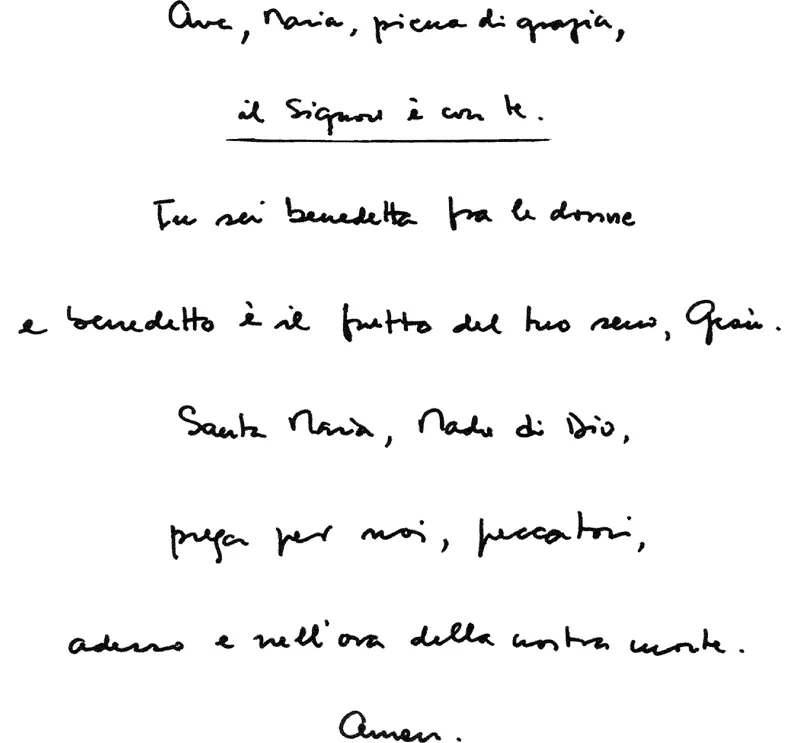 Ave, Maria, piena di grazia,
il Signore è con te.
Tu sei benedetta fra le donne
e benedetto è il frutto del tuo seno, Gesù.
Santa Maria, Madre di Dio,
prega per noi, peccatori,
adesso e nell'ora della nostra morte.
Amen.